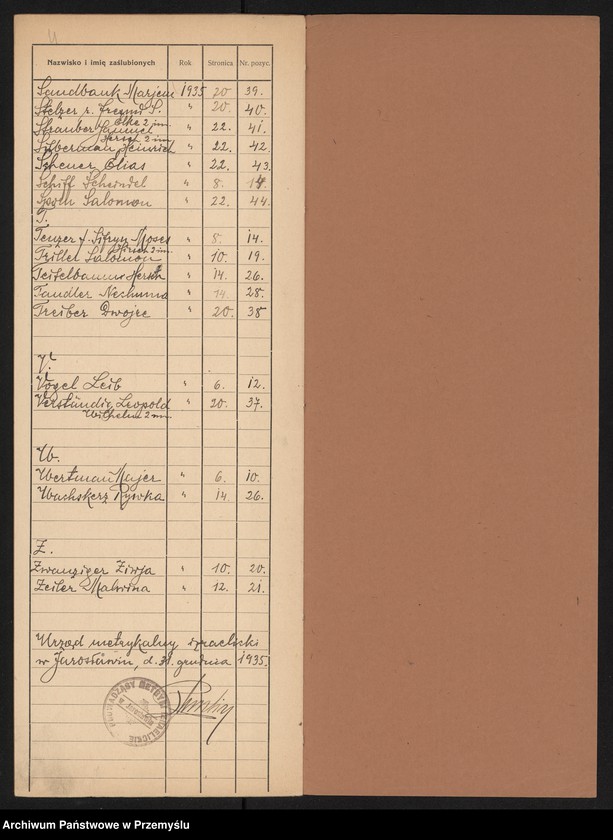 Nazwisko i imię zaślubionych Rok Stronica Nr. pozyc.
Sandbank Marjem 1935 20 39.
Stelzer r. Freund S. " 20. 40.
Elke 2 im.
Strauber Samuel " 22. 41.
Hersch 2 im.
Silberman Heinrich " 22. 42.
Scheuer Elias " 22. 43.
Schiff Scheindel " 8. 14.
Salomon " 22. 44.
T.
Tenzer f. Moses " 8. 14.
Hirsch 2 im.
Triller Salomon " 10. 19.
Teitelbaum Hersch " 14. 26.
Tandler Nechuma " 14. 28.
Treiber Dwojre " 20. 38
V.
Vogel Leib " 6. 12.
Verständig Leopold " 20. 37.
Wilhelm 2 im.
W.
Wertman Majer " 6. 10.
Wachskerz Rywka " 14. 26.
Z.
Zwanziger Ziwja " 10. 20.
Zeiler Malwina " 12. 21.
Urząd metrykalny izraelicki
w Jarosławiu, d. 31. grudnia 1935.
Archiwum Państwowe w Przemyślu